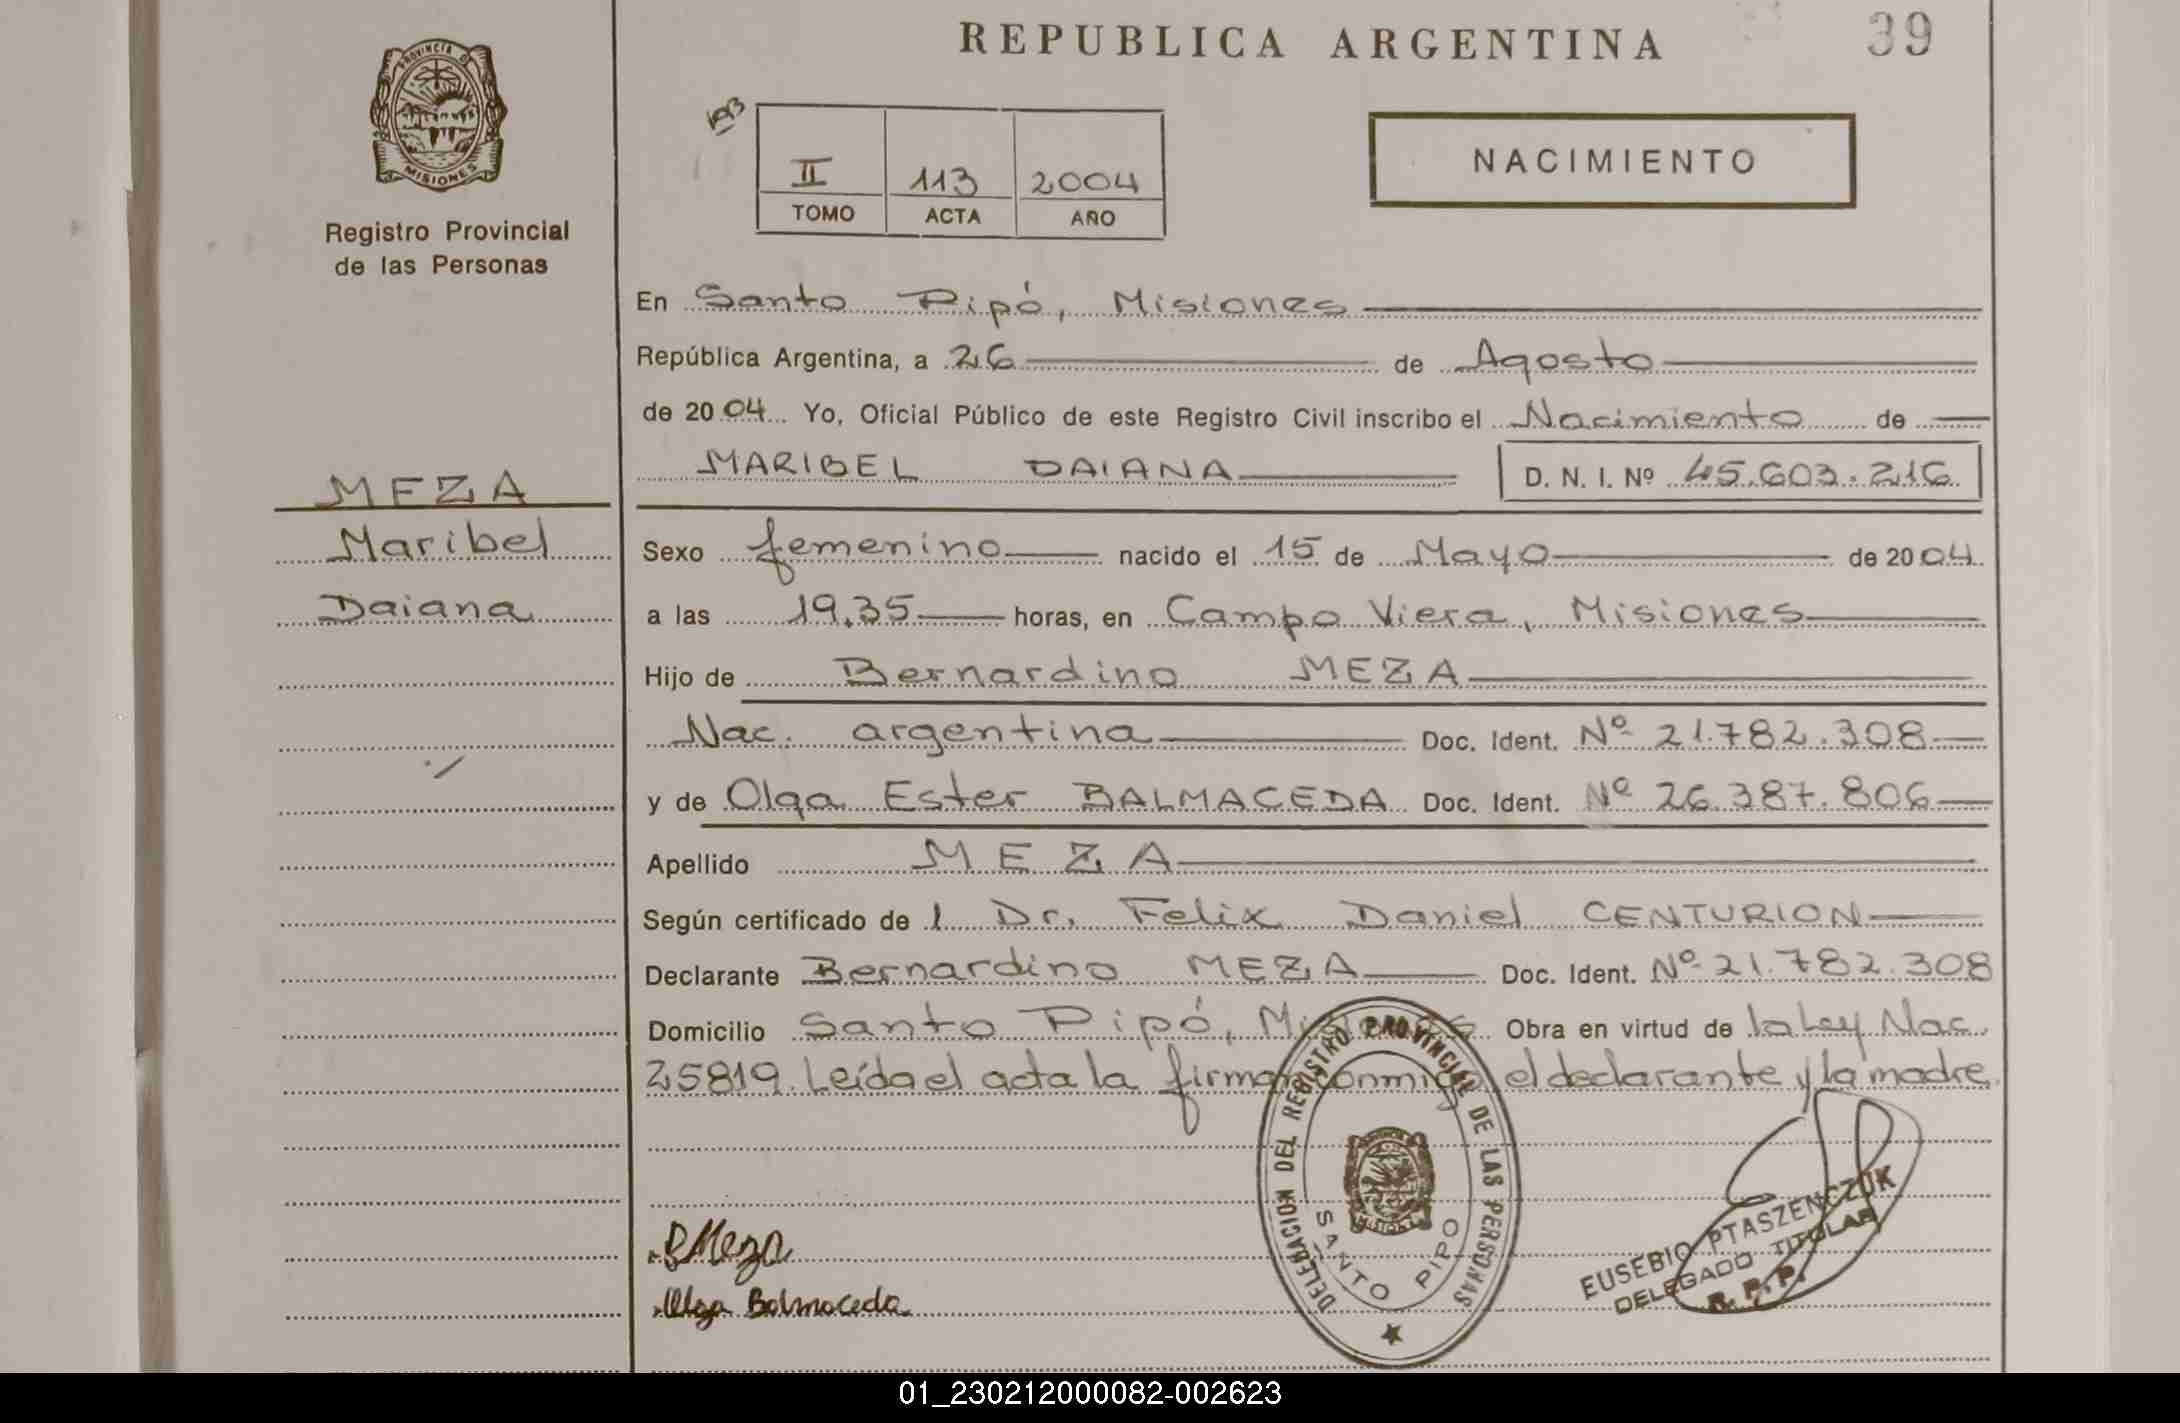 REPUBLICA ARGENTINA
39
PROVINCIA D
MISIONES
Registro Provincial
de las Personas
193
II 113 2004
TOMO ACTA AÑO
NACIMIENTO
En Santo Pipó, Misiones
República Argentina, a 26 de Agosto
de 2004 Yo, Oficial Público de este Registro Civil inscribo el Nacimiento de
MARIBEL DAIANA D. N. I. Nº 45.603.216
MEZA
Maribel
Daiana
Sexo femenino nacido el 15 de Mayo de 2004
a las 19.35 horas, en Campo Viera, Misiones
Hijo de Bernardino MEZA
Nac. argentina Doc. Ident. Nº 21.782.308
y de Olga Ester BALMACEDA Doc. Ident. Nº 26.387.806
Apellido MEZA
Según certificado de l Dr. Felix Daniel CENTURION
Declarante Bernardino MEZA Doc. Ident. Nº 21.782.308
Domicilio Santo Pipó, Misiones Obra en virtud de la Ley Nac.
25819. Leída el acta la firman conmigo el declarante y la madre
DELEGACION DEL REGISTRO PROVINCIAL DE LAS PERSONAS
MISIONES
SANTO PIPO
BMeza
Olga Balmaceda
EUSEBIO PTASZENCZUK
DELEGADO TITULAR
R. P. P.
01_230212000082-002623